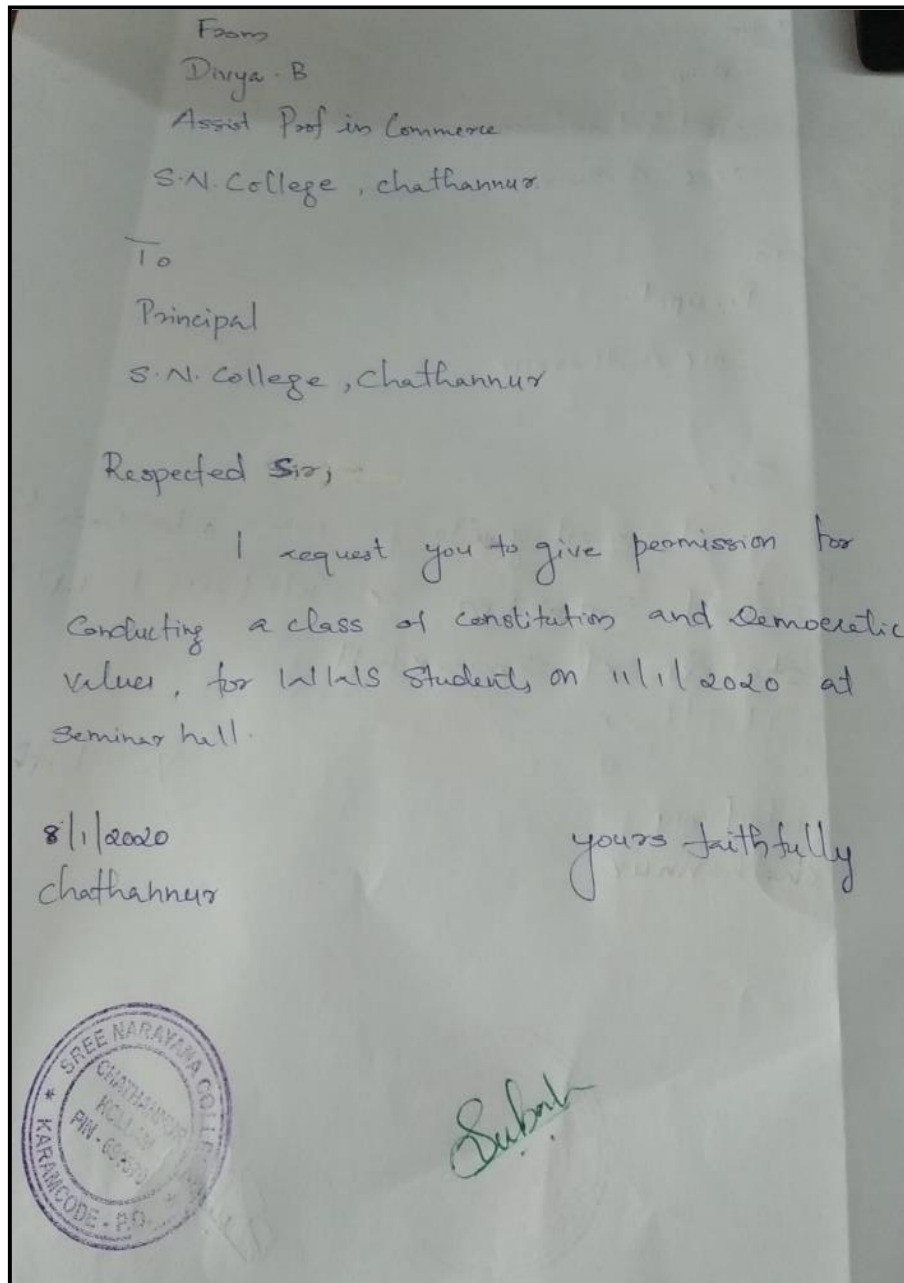 From
Divya. B
Assist Prof in Commerce
S.N. College, chathannur
To
Principal
S.N. College, chathannur
Respected Sir,
I request you to give permission for
Conducting a class of constitution and Democratic
values, for WWS Students on 11/1/2020 at
Seminar hall.
8/1/2020
chathannur
yours faithfully
SREE NARAYANA COLLEGE
CHATHANNOOR
KOLLAM
PIN -
* KARAMCODE - P.O.